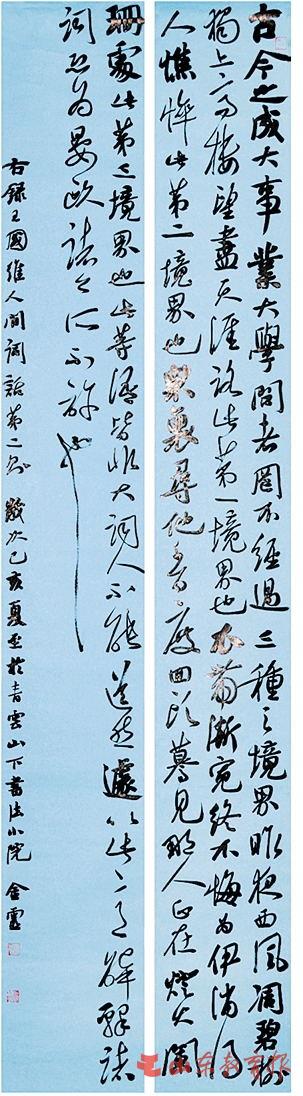 古今之成大事業大學問者罔不經過三種之境界昨夜西風凋碧樹
獨上高樓望盡天涯路此第一境界也衣帶漸寬終不悔為伊消得
人憔悴此第二境界也眾裏尋他千百度回頭驀見那人正在燈火闌
珊處此第三境界也此等語皆非大詞人不能道然遽以此意解釋諸
詞恐為晏歐諸公所不許也
右錄王國維人間詞話第二則 歲次己亥夏至於青雲山下書法小院 金靈
山东教育报